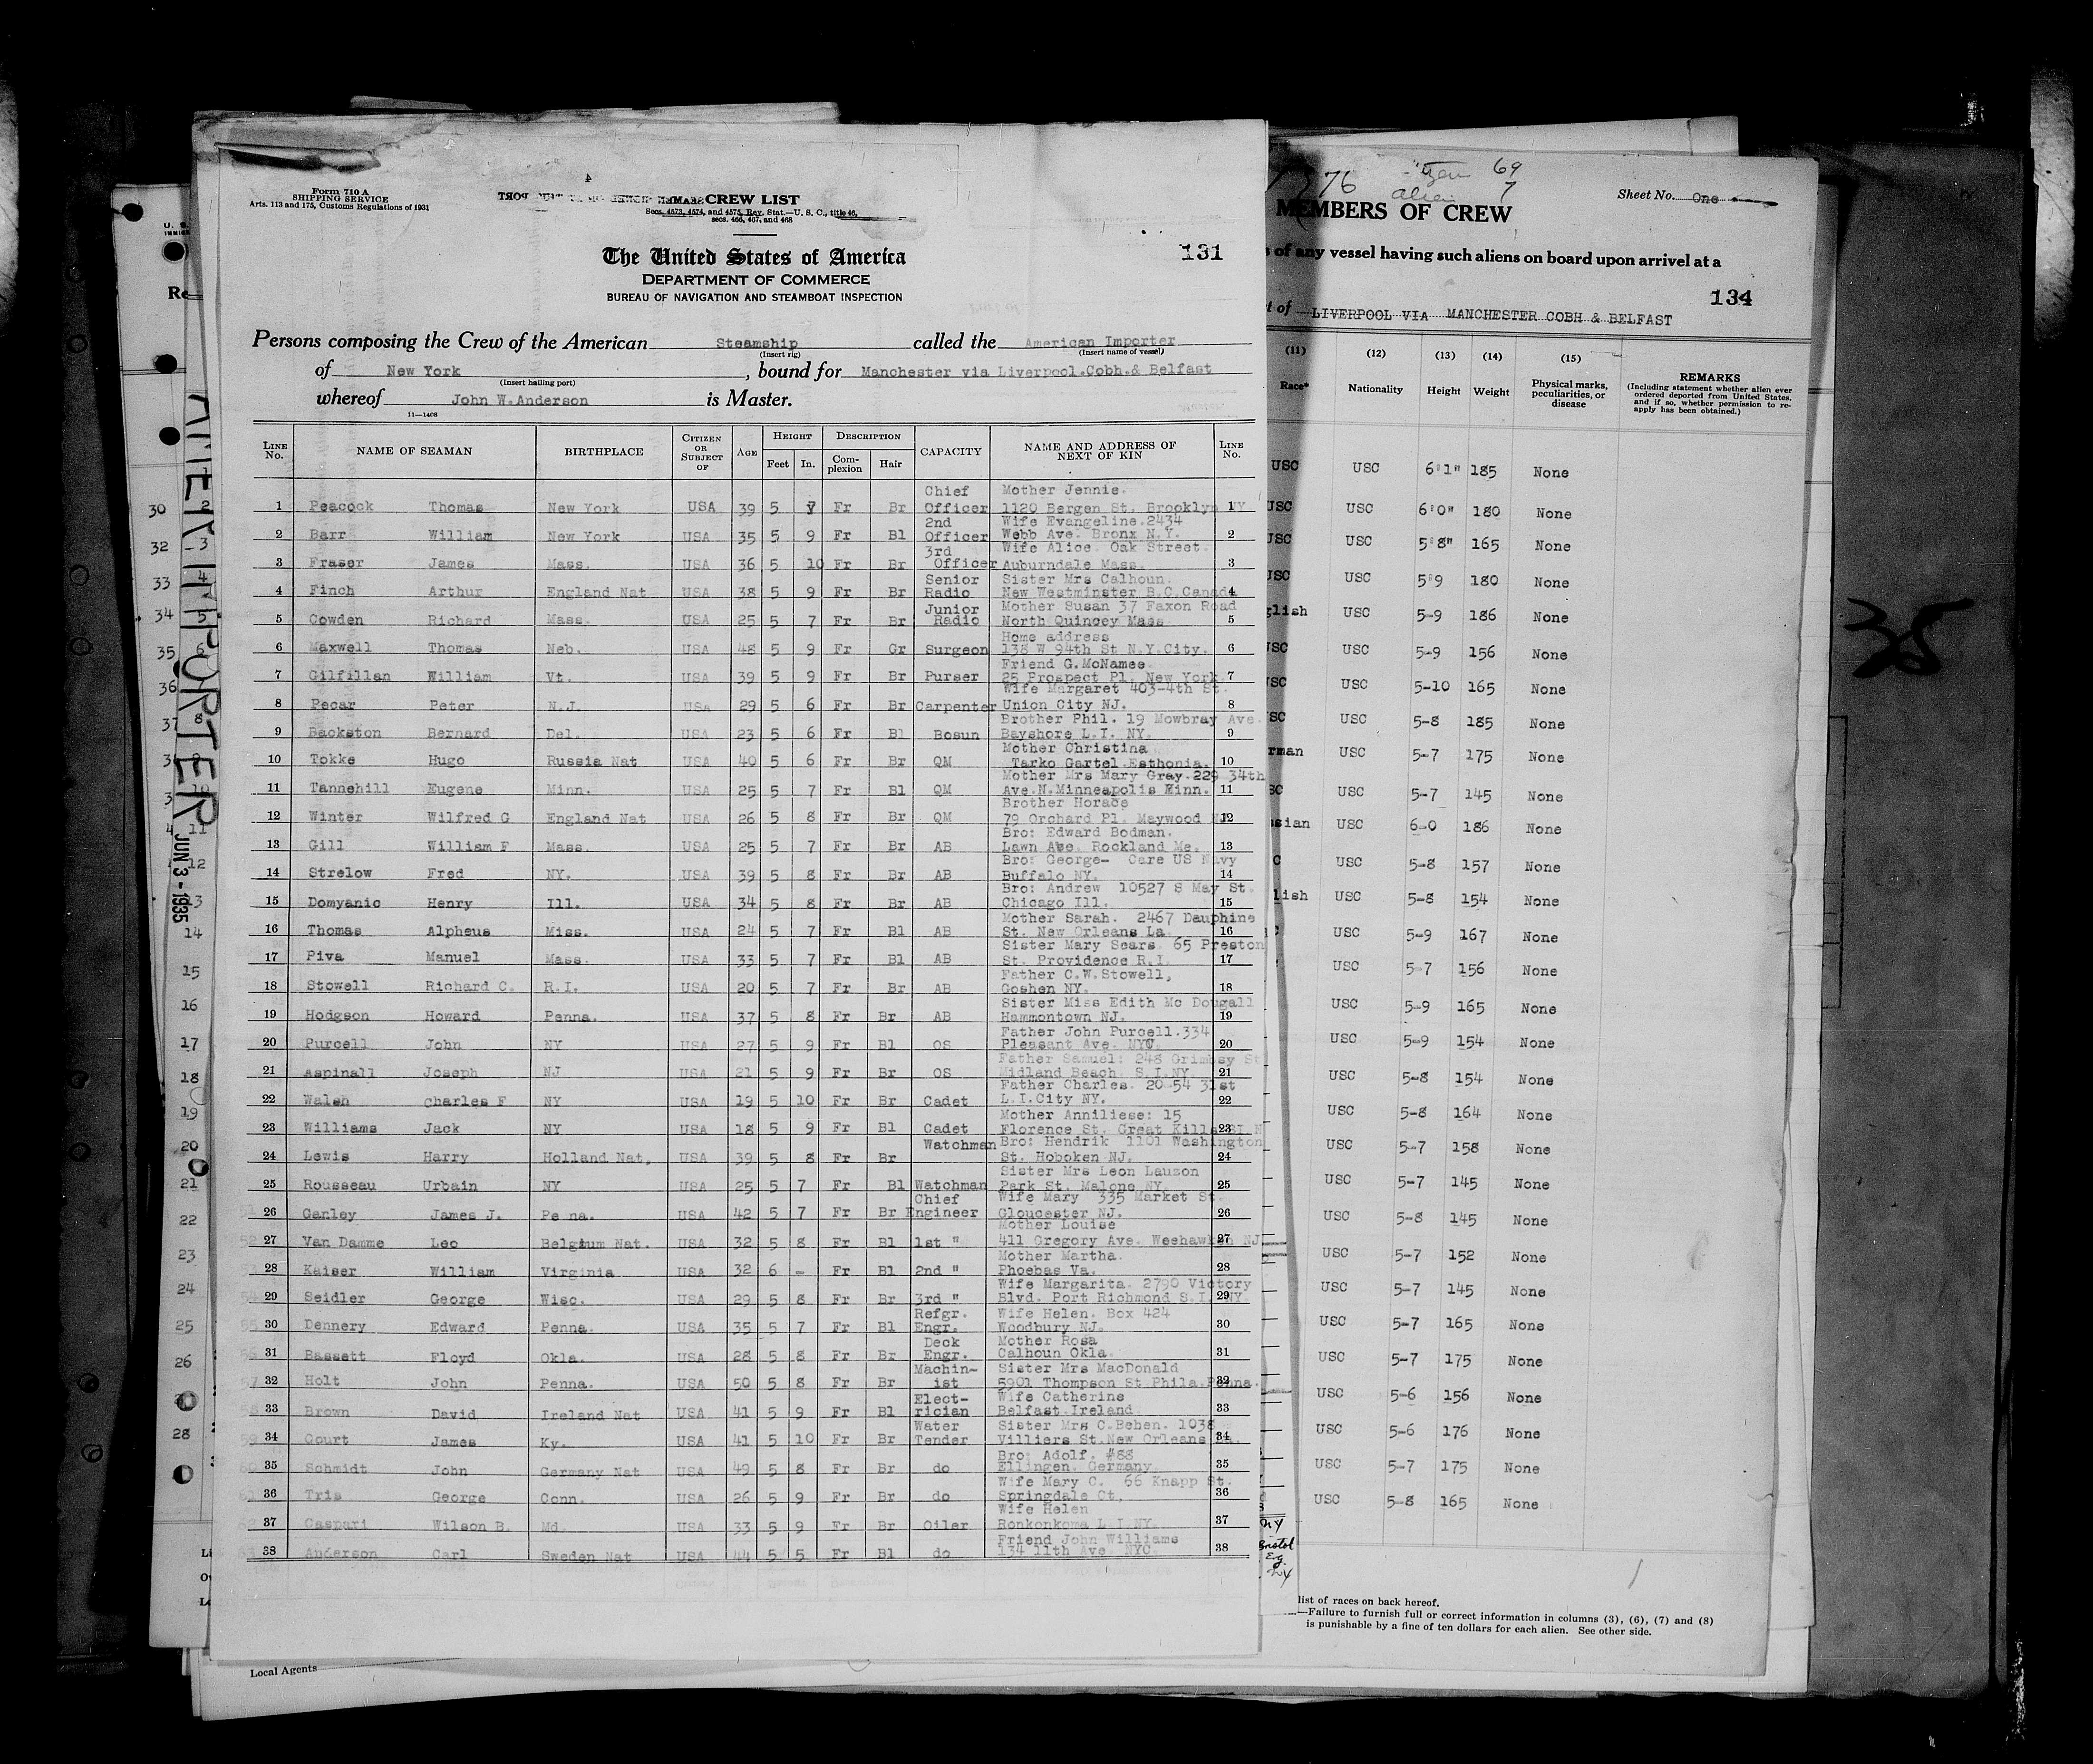 Form 710 A
SHIPPING SERVICE
Arts. 113 and 175, Customs Regulations of 1931
CREW LIST
Secs. 4573, 4574, and 4575, Rev. Stat.—U. S. C., title 46,
secs. 466, 467, and 468
The United States of America
DEPARTMENT OF COMMERCE
BUREAU OF NAVIGATION AND STEAMBOAT INSPECTION
131
Persons composing the Crew of the American Steamship called the American Importer
(Insert rig) (Insert name of vessel)
of New York, bound for Manchester via Liverpool.Cobh.& Belfast
(Insert hailing port)
whereof John W.Anderson is Master.
11—1408
LINE No. NAME OF SEAMAN BIRTHPLACE CITIZEN OR SUBJECT OF AGE HEIGHT Feet In. DESCRIPTION Complexion Hair CAPACITY NAME AND ADDRESS OF NEXT OF KIN LINE No.
1 Peacock Thomas New York USA 39 5 7 Fr Br Chief Officer Mother Jennie. 1120 Bergen St. Brooklyn NY 1
2 Barr William New York USA 35 5 9 Fr Bl 2nd Officer Wife Evangeline.2434 Webb Ave. Bronx N.Y. 2
3 Fraser James Mass. USA 36 5 10 Fr Br 3rd Officer Wife Alice. Oak Street. Auburndale Mass. 3
4 Finch Arthur England Nat USA 38 5 9 Fr Br Senior Radio Sister Mrs Calhoun. New Westminster B.C.Canada 4
5 Cowden Richard Mass. USA 25 5 7 Fr Br Junior Radio Mother Susan 37 Faxon Road North Quincey Mass 5
6 Maxwell Thomas Neb. USA 48 5 9 Fr Gr Surgeon Home address 138 W 94th St N.Y.City. 6
7 Gilfillan William Vt. USA 39 5 9 Fr Br Purser Friend G.McNamee. 25 Prospect Pl. New York. 7
8 Pecar Peter N.J. USA 29 5 6 Fr Br Carpenter Wife Margaret 403-4th St. Union City NJ. 8
9 Backston Bernard Del. USA 23 5 6 Fr Bl Bosun Brother Phil. 19 Mowbray Ave. Bayshore L.I. NY. 9
10 Tokke Hugo Russia Nat USA 40 5 6 Fr Br QM Mother Christina Tarko Gartel.Esthonia. 10
11 Tannehill Eugene Minn. USA 25 5 7 Fr Bl QM Mother Mrs Mary Gray.229 34th Ave.N.Minneapolis Minn. 11
12 Winter Wilfred G England Nat USA 26 5 8 Fr Br QM Brother Horace 79 Orchard Pl. Maywood NJ 12
13 Gill William F Mass. USA 25 5 7 Fr Br AB Bro: Edward Bodman. Lawn Ave. Rockland Me. 13
14 Strelow Fred NY. USA 39 5 8 Fr Br AB Bro: George- Care US Navy Buffalo NY. 14
15 Domyanic Henry Ill. USA 34 5 8 Fr Br AB Bro: Andrew 10527 S May St. Chicago Ill. 15
16 Thomas Alpheus Miss. USA 24 5 7 Fr Bl AB Mother Sarah. 2467 Dauphine St. New Orleans La 16
17 Piva Manuel Mass. USA 33 5 7 Fr Bl AB Sister Mary Sears. 65 Preston St. Providence R.I. 17
18 Stowell Richard C. R.I. USA 20 5 7 Fr Br AB Father C.W.Stowell, Goshen NY. 18
19 Hodgson Howard Penna. USA 37 5 8 Fr Br AB Sister Miss Edith Mc Dougall Hammontown NJ. 19
20 Purcell John NY USA 27 5 9 Fr Bl OS Father John Purcell.334 Pleasant Ave. NYC. 20
21 Aspinall Joseph NJ USA 21 5 9 Fr Br OS Father Samuel: 248 Grimbsy St Midland Beach. S.I.NY. 21
22 Walsh charles F NY USA 19 5 10 Fr Br Cadet Father Charles. 20-54 31st L.I.City NY. 22
23 Williams Jack NY USA 18 5 9 Fr Bl Cadet Mother Anniliese: 15 Florence St. Great Kills SI N 23
24 Lewis Harry Holland Nat. USA 39 5 8 Fr Br Watchman Bro: Hendrik 1101 Washington St. Hoboken NJ. 24
25 Rousseau Urbain NY USA 25 5 7 Fr Bl Watchman Sister Mrs Leon Lauzon Park St. Malone NY. 25
26 Ganley James J. Penna. USA 42 5 7 Fr Br Chief Engineer Wife Mary 335 Market St. Gloucester NJ. 26
27 Van Damme Leo Belgium Nat. USA 32 5 8 Fr Bl 1st " Mother Louise 411 Gregory Ave. Weehawken NJ 27
28 Kaiser William Virginia USA 32 6 - Fr Bl 2nd " Mother Martha. Phoebas Va. 28
29 Seidler George Wisc. USA 29 5 8 Fr Br 3rd " Wife Margarita. 2790 Victory Blvd. Port Richmond S.I. NY. 29
30 Dennery Edward Penna. USA 35 5 7 Fr Bl Refgr. Engr. Wife Helen. Box 424 Woodbury NJ. 30
31 Bassett Floyd Okla. USA 28 5 8 Fr Br Deck Engr. Mother Rosa Calhoun Okla. 31
32 Holt John Penna. USA 50 5 8 Fr Br Machin-ist Sister Mrs MacDonald 5901 Thompson St Phila.Penna. 32
33 Brown David Ireland Nat USA 41 5 9 Fr Bl Elect-rician Wife Catherine Belfast Ireland 33
34 Court James Ky. USA 41 5 10 Fr Br Water Tender Sister Mrs C.Behen. 1038 Villiers St.New Orleans La. 34
35 Schmidt John Germany Nat USA 49 5 8 Fr Br do Bro: Adolf. #88 Ellingen. Germany. 35
36 Tris George Conn. USA 26 5 9 Fr Br do Wife Mary C. 66 Knapp St. Springdale Ct. 36
37 Caspari Wilson B. Md USA 33 5 9 Fr Br Oiler Wife Helen Ronkonkoma L.I.NY. 37
38 Anderson Carl Sweden Nat USA 44 5 5 Fr Bl do Friend John Williams 134 11th Ave. NYC. 38
Local Agents
IMPORTER
JUN 3 - 1935
76
69
alien 7
Sheet No. One
MEMBERS OF CREW
of any vessel having such aliens on board upon arrival at a
134
of LIVERPOOL VIA MANCHESTER COBH & BELFAST
(11) (12) (13) (14) (15)
Race* Nationality Height Weight Physical marks, peculiarities, or disease REMARKS
(Including statement whether alien ever ordered deported from United States, and if so, whether permission to reapply has been obtained.)
USC USC 6'1" 185 None
USC USC 6'0" 180 None
USC USC 5'8" 165 None
USC USC 5'9 180 None
glish USC 5-9 186 None
USC USC 5-9 156 None
USC USC 5-10 165 None
SC USC 5-8 185 None
rman USC 5-7 175 None
SC USC 5-7 145 None
sian USC 6-0 186 None
C USC 5-8 157 None
lish USC 5-8 154 None
USC 5-9 167 None
USC 5-7 156 None
USC 5-9 165 None
USC 5-9 154 None
USC 5-8 154 None
USC 5-8 164 None
USC 5-7 158 None
USC 5-7 145 None
USC 5-8 145 None
USC 5-7 152 None
USC 5-7 145 None
USC 5-7 165 None
USC 5-7 175 None
USC 5-6 156 None
USC 5-6 176 None
USC 5-7 175 None
USC 5-8 165 None
NY
Bristol
Eng.
list of races on back hereof.
—Failure to furnish full or correct information in columns (3), (6), (7) and (8)
is punishable by a fine of ten dollars for each alien. See other side.
35